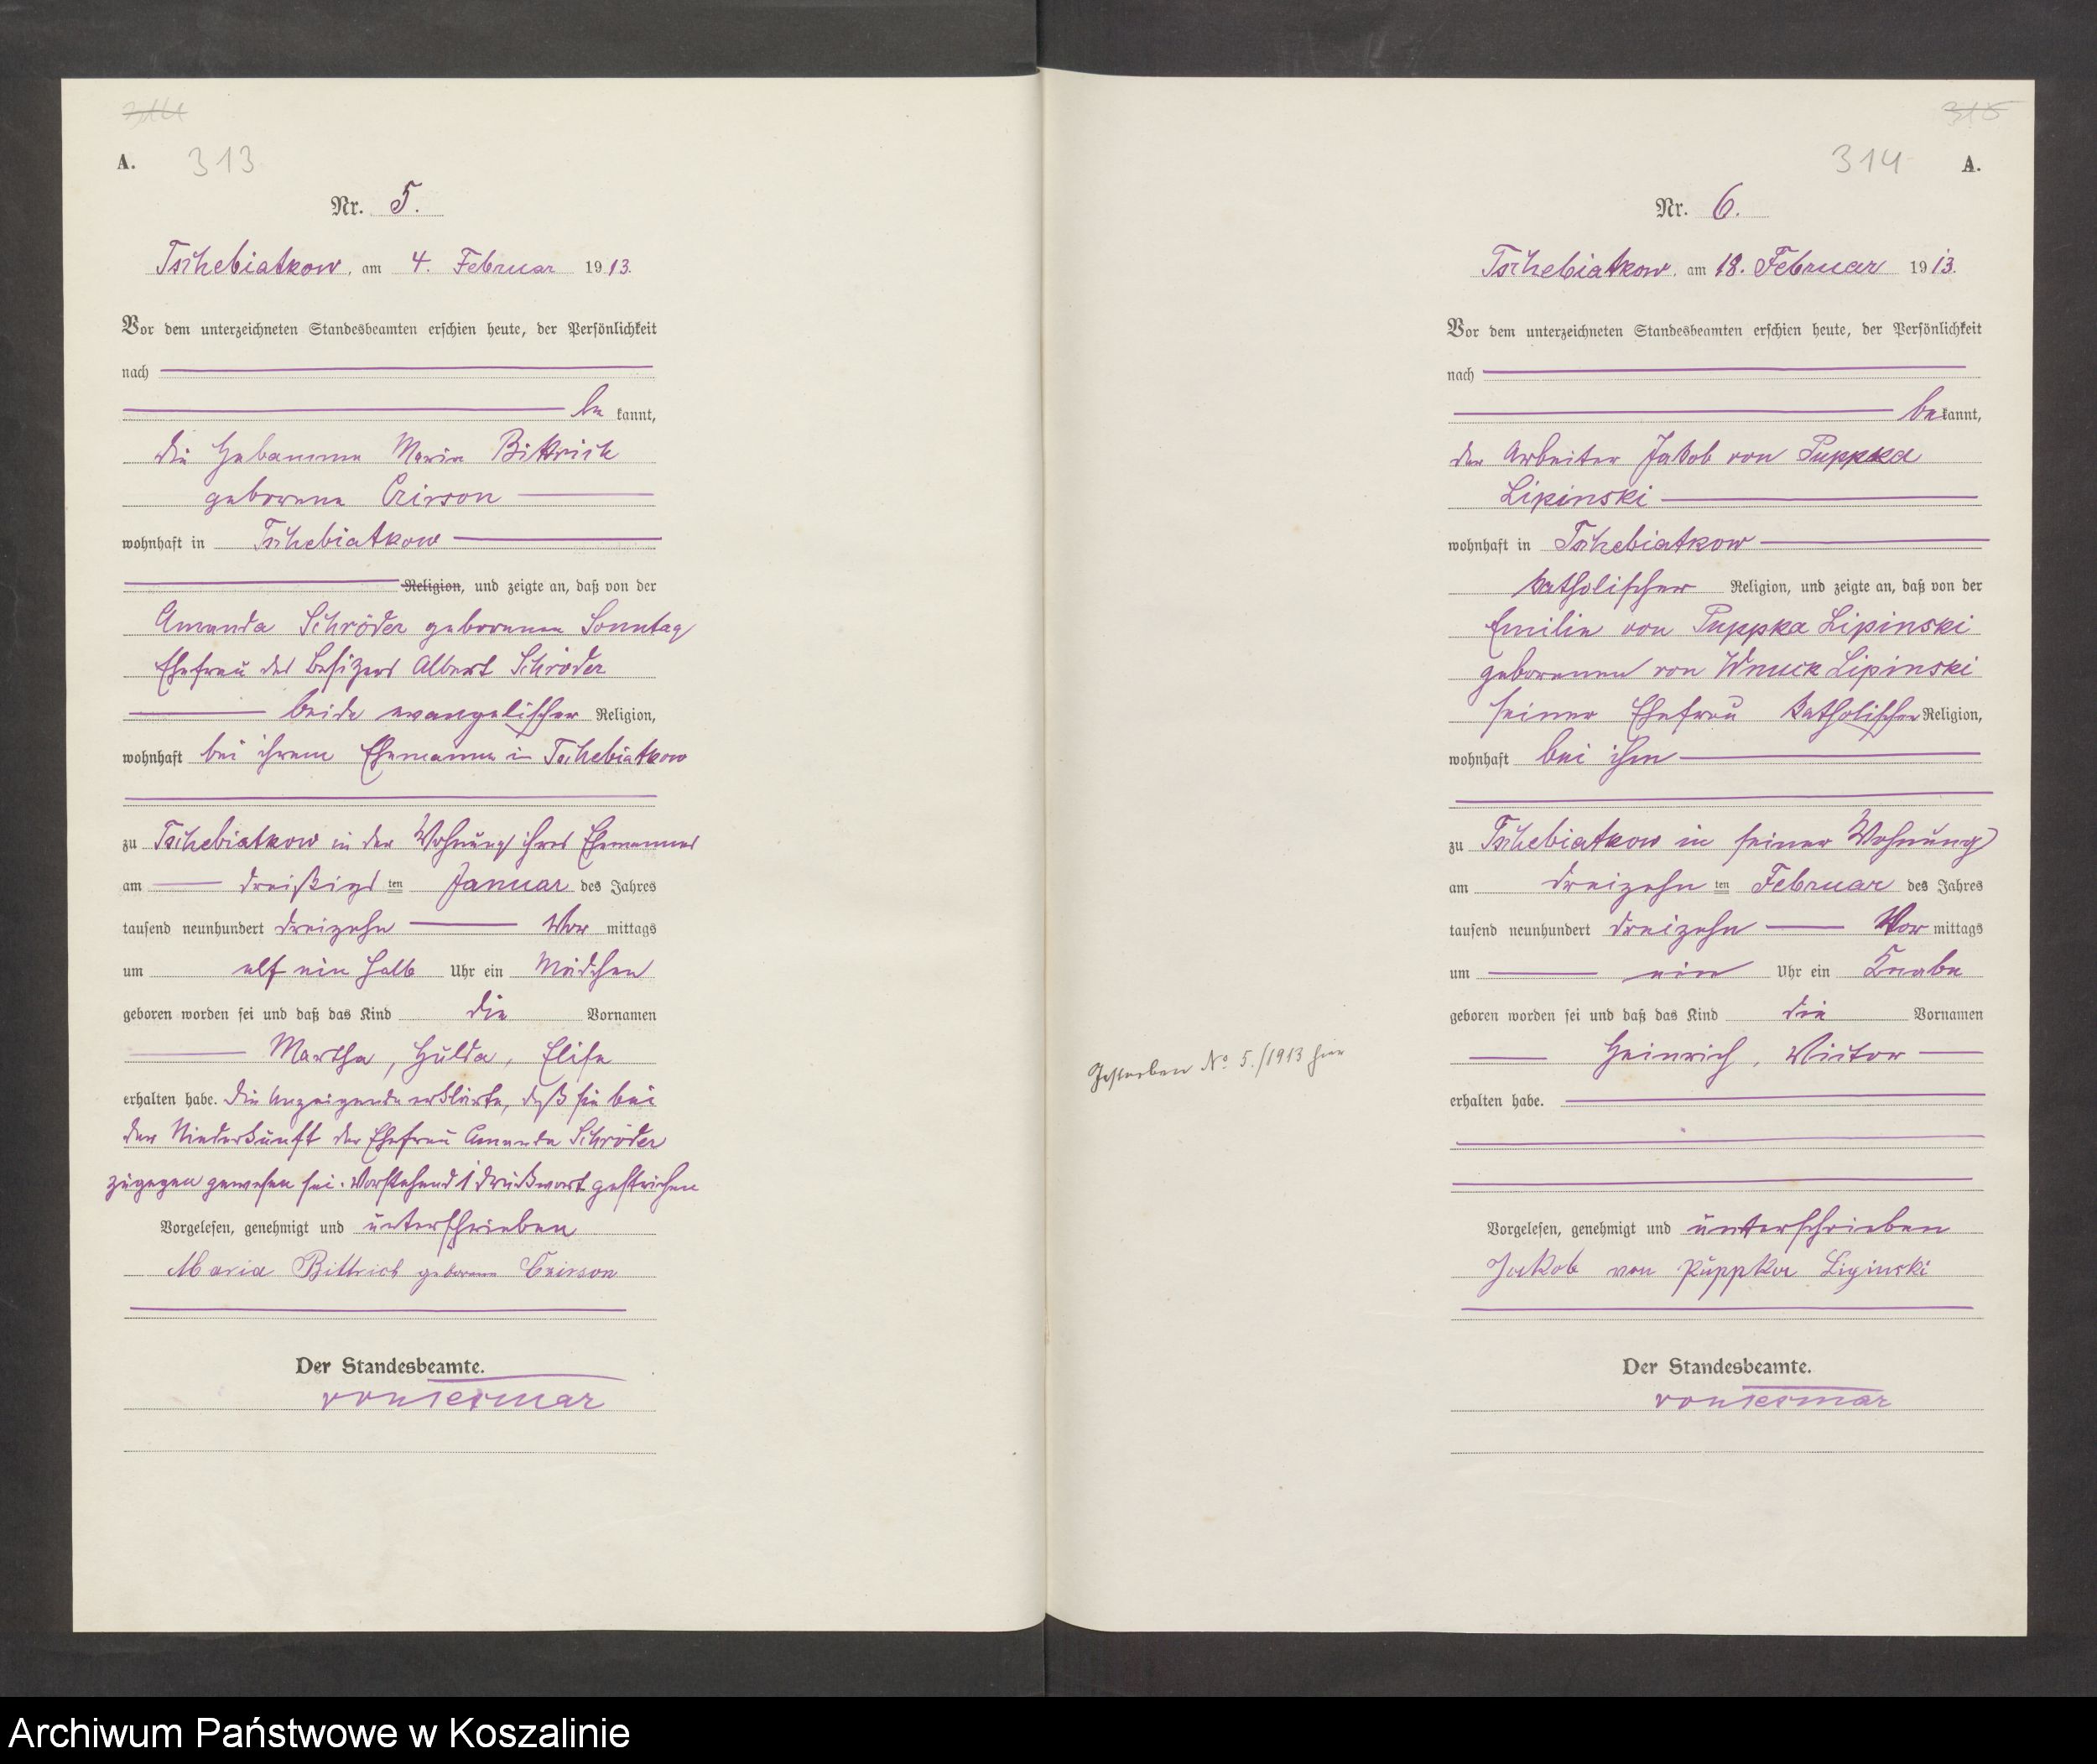 A. 313
Nr. 5.
Tschebiatkow, am 4. Februar 1913.
Vor dem unterzeichneten Standesbeamten erschien heute, der Persönlichkeit
nach
be kannt,
die Hebamme Maria Bittrich
geborene Crivson
wohnhaft in Tschebiatkow
Religion, und zeigte an, daß von der
Amanda Schröder geborenen Sonntag
Ehefrau des Besitzers Albert Schröder
beide evangelischer Religion,
wohnhaft bei ihrem Ehemanne in Tschebiatkow
zu Tschebiatkow in der Wohnung ihres Ehemannes
am dreißigs ten Januar des Jahres
tausend neunhundert dreizehn Vor mittags
um elf ein halb Uhr ein Mädchen
geboren worden sei und daß das Kind die Vornamen
Martha, Hulda, Elise
erhalten habe. Die Anzeigende erklärte, daß sie bei
der Niederkunft der Ehefrau Amanda Schröder
zugegen gewesen sei. Vorstehend 1 Druckwort gestrichen
Vorgelesen, genehmigt und unterschrieben
Maria Bittrich geborene
Der Standesbeamte.
315
314 A.
Nr. 6.
Tschebiatkow, am 18. Februar 1913.
Vor dem unterzeichneten Standesbeamten erschien heute, der Persönlichkeit
nach
be kannt,
der Arbeiter Jakob von Puppka
Lipinski
wohnhaft in Tschebiatkow
katholischer Religion, und zeigte an, daß von der
Emilie von Puppka Lipinski
geborenen von Wnuck Lipinski
seiner Ehefrau katholischer Religion,
wohnhaft bei ihm
zu Tschebiatkow in seiner Wohnung
am dreizehn ten Februar des Jahres
tausend neunhundert dreizehn Vor mittags
um ein Uhr ein Knabe
geboren worden sei und daß das Kind die Vornamen
Heinrich, Victor
Gestorben No 5./1913 hier
erhalten habe.
Vorgelesen, genehmigt und unterschrieben
Jakob von Puppka Lipinski
Der Standesbeamte.
Archiwum Państwowe w Koszalinie